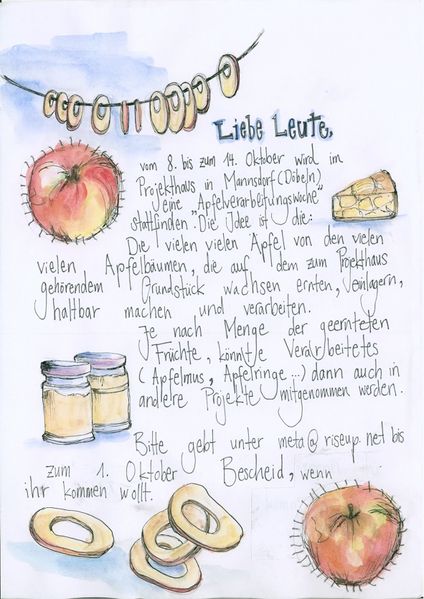 Liebe Leute,
vom 8. bis zum 14. Oktober wird im
Projekthaus in Mannsdorf (Döbeln)
"eine Apfelverarbeitungswoche"
stattfinden. Die Idee ist die:
Die vielen vielen Äpfel von den vielen
vielen Apfelbäumen, die auf dem zum Projekthaus
gehörendem Grundstück wachsen ernten, einlagern,
haltbar machen und verarbeiten.
Je nach Menge der geernteten
Früchte, könn(t)e Vera(r)beitetes
(Apfelmus, Apfelringe...) dann auch in
andere Projekte mitgenommen werden.
Bitte gebt unter meta@riseup.net bis
zum 1. Oktober Bescheid, wenn
ihr kommen wollt.